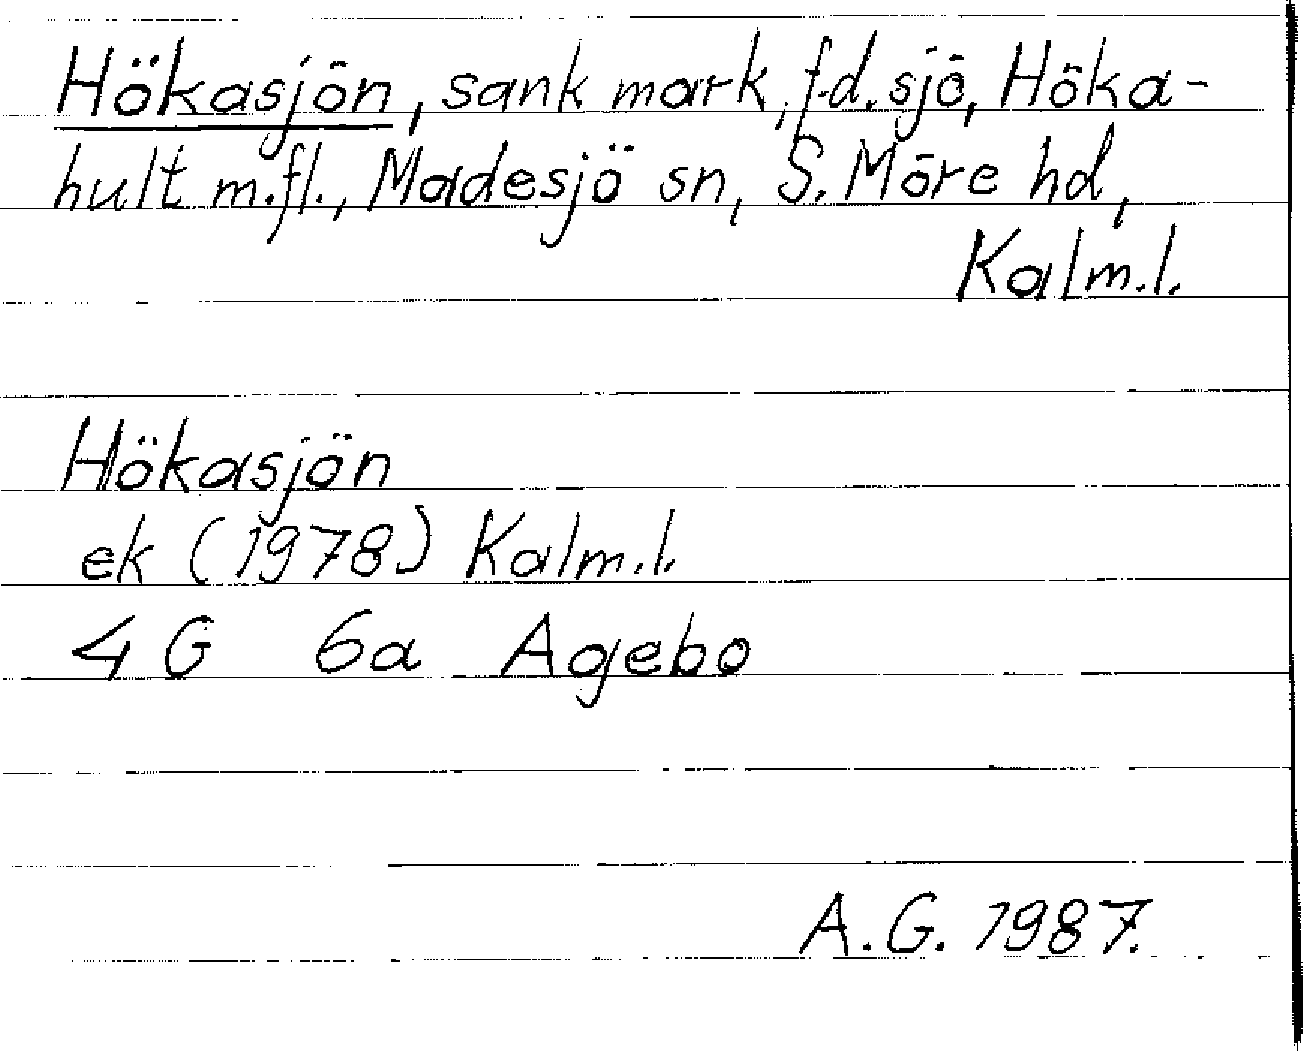 Hökasjön, sank mark, f.d. sjö, Höka-
hult m.fl., Madesjö sn, S. Möre hd,
Kalm.l.
Hökasjön
ek (1978) Kalm.l.
4 G 6a Agebo
A.G. 1987.